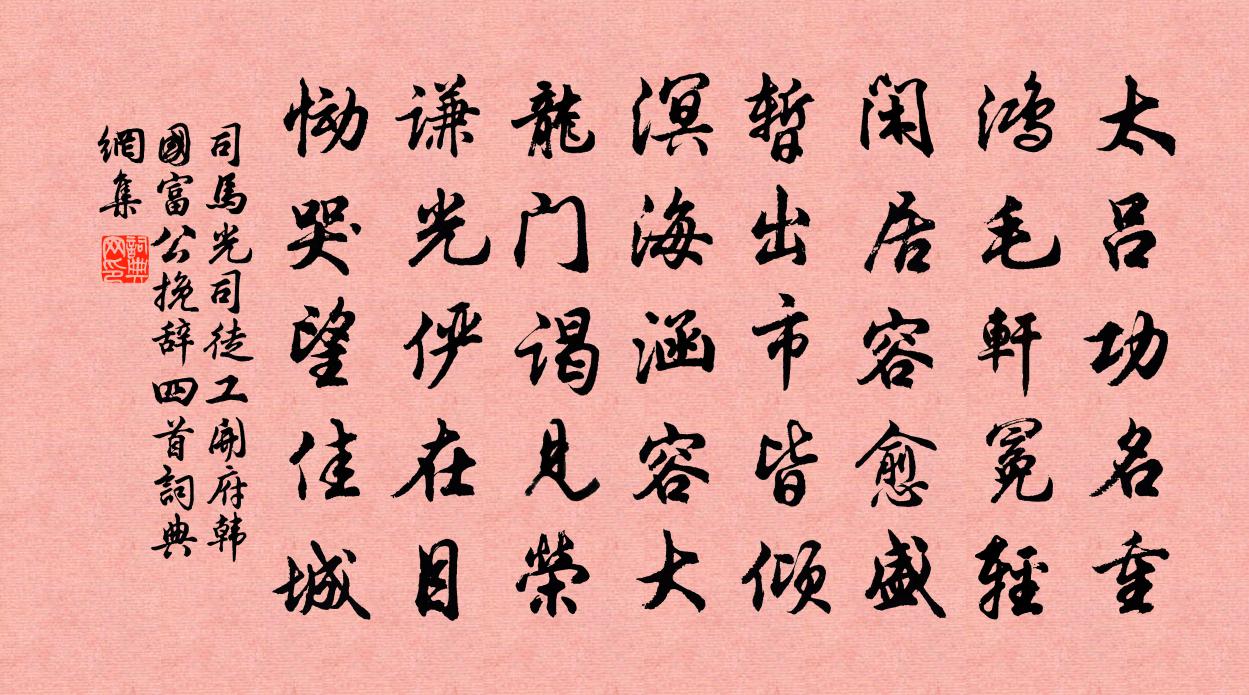 太吕功名重
鸿毛軒冕輕
闲居容愈盛
暫出市皆倾
溟海涵容大
龍门谒見榮
谦光俨在目
恸哭望佳城
司馬光司徒工開府韩
國富公挽辞四首詞典
網集
詞典
网印